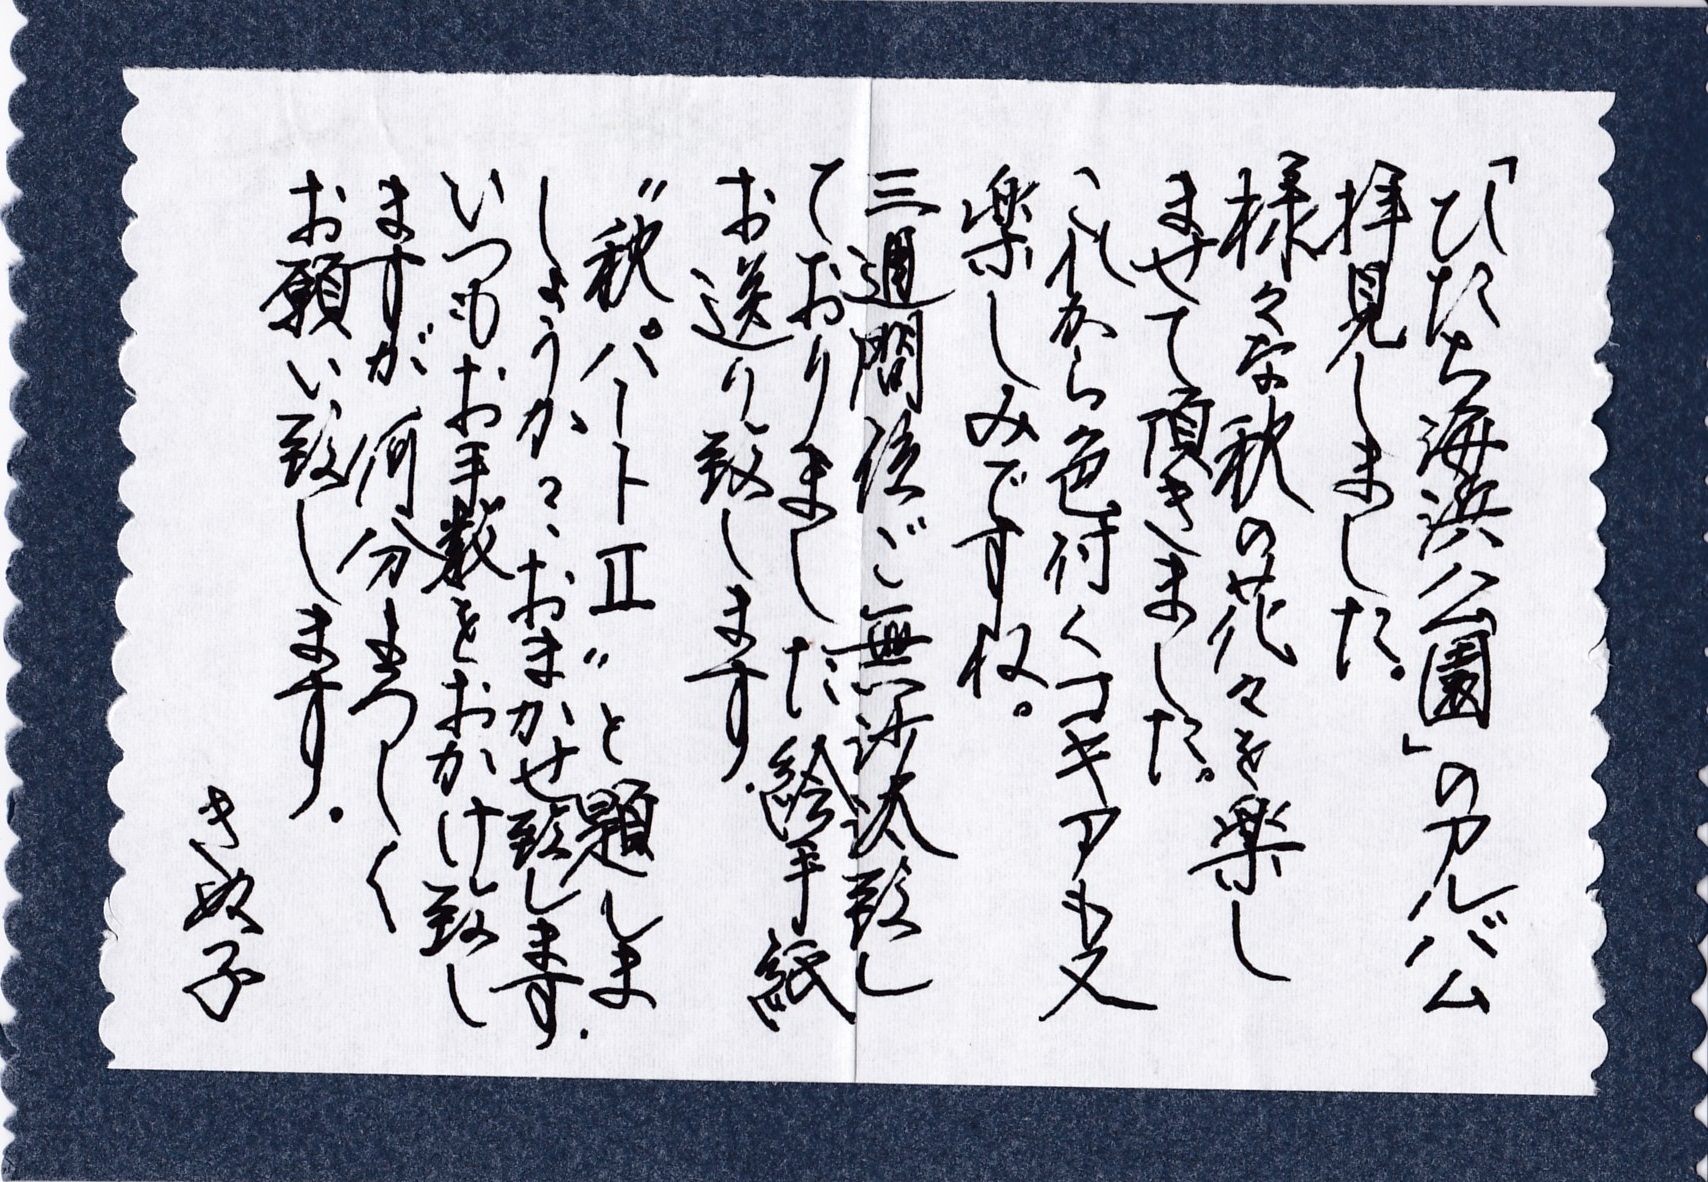 「ひたち海浜公園」のアルバム
拝見しました。
様々な秋の花々を楽し
ませて頂きました。
これから色付くコキアも又
楽しみですね。
三週間位ご無沙汰致し
ておりました絵手紙
お送り致します.
〝秋パートⅡ〟と題しま
しょうか?、おまかせ致します.
いつもお手数をおかけ致し
ますが何分よろしく
お願い致します.
きぬ子